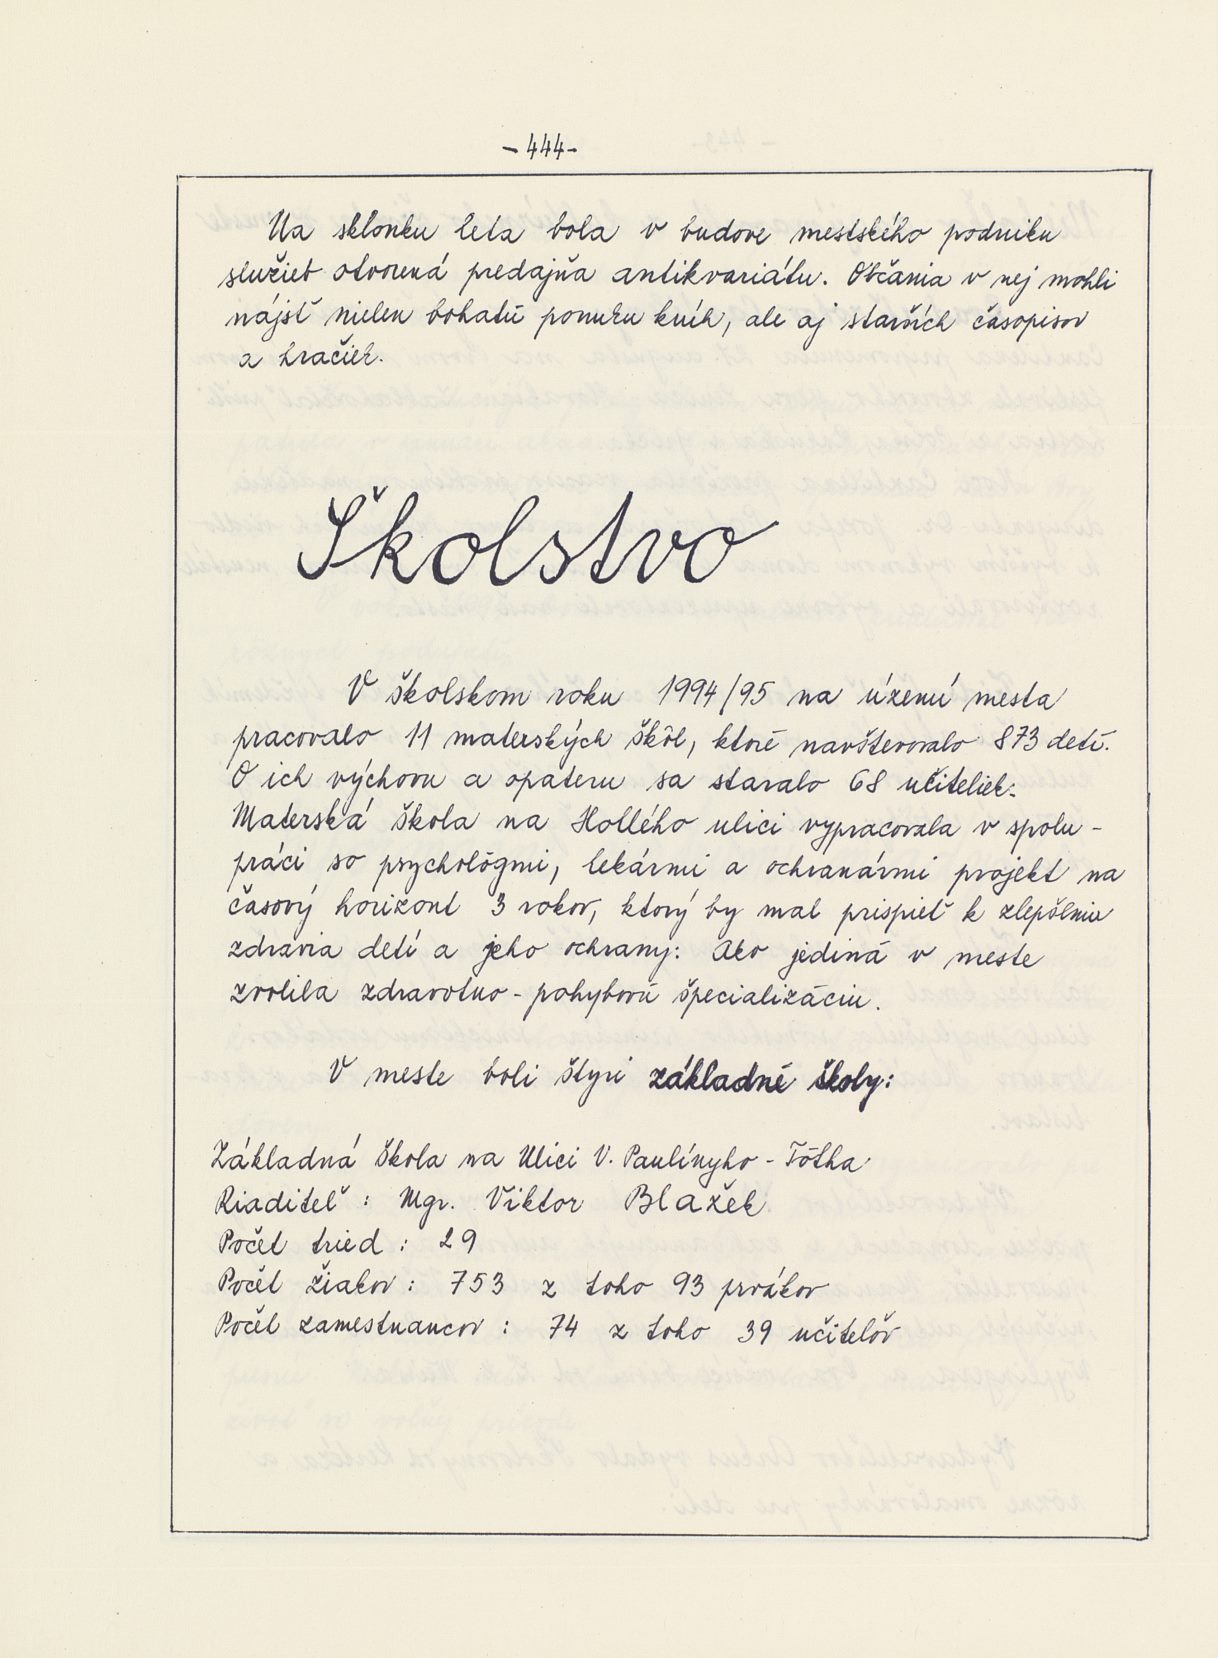 - 444 -
Na sklonku leta bola v budove mestského podniku
služieb otvorená predajňa antikvariátu. Občania v nej mohli
nájsť nielen bohatú ponuku kníh, ale aj starších časopisov
a hračiek.
Školstvo
V školskom roku 1994/95 na území mesta
pracovalo 11 materských škôl, ktoré navštevovalo 873 detí.
O ich výchovu a opateru sa staralo 68 učiteliek.
Materská škola na Hollého ulici vypracovala v spolu-
práci so psychológmi, lekármi a ochranármi projekt na
časový horizont 3 rokov, ktorý by mal prispieť k zlepšeniu
zdravia detí a jeho ochrany. Ako jediná v meste
zvolila zdravotno - pohybovú špecializáciu.
V meste boli štyri základné školy:
Základná škola na Ulici V. Paulínyho - Tótha
Riaditeľ : Mgr. Viktor Blažek
Počet tried : 29
Počet žiakov : 753 z toho 93 prvákov
Počet zamestnancov : 74 z toho 39 učiteľov